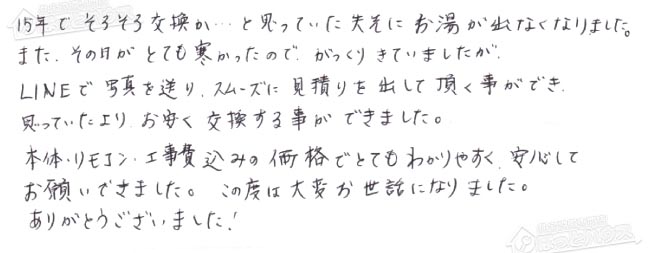 15年で そろそろ交換か…と思っていた矢先に お湯が出なくなりました。
また、その日が とても寒かったので、がっくりきていましたが、
LINEで 写真を送り、スムーズに 見積りを出して 頂く事ができ、
思っていたより お安く 交換する事が できました。
本体・リモコン・工事費込みの価格でとてもわかりやすく、安心して
お願いできました。この度は大変お世話になりました。
ありがとうございました!